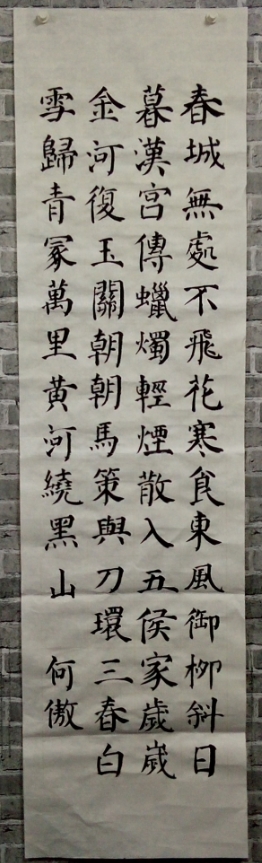 春城無處不飛花寒食東風御柳斜日
暮漢宮傳蠟燭輕煙散入五侯家歲歲
金河復玉關朝朝馬策與刀環三春白
雪歸青冢萬里黃河繞黑山 何傲